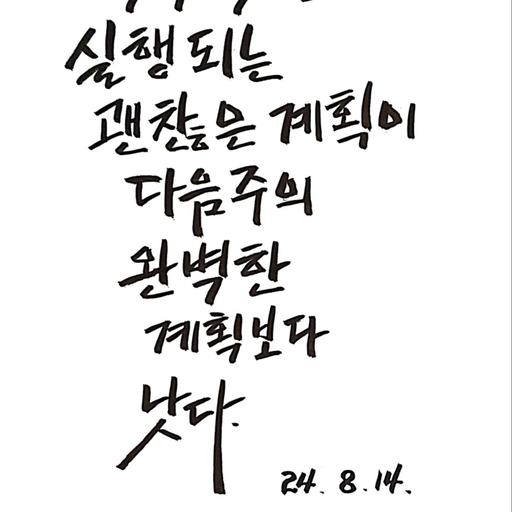 실행되는
괜찮은 계획이
다음주의
완벽한
계획보다
낫다.
24. 8. 14.